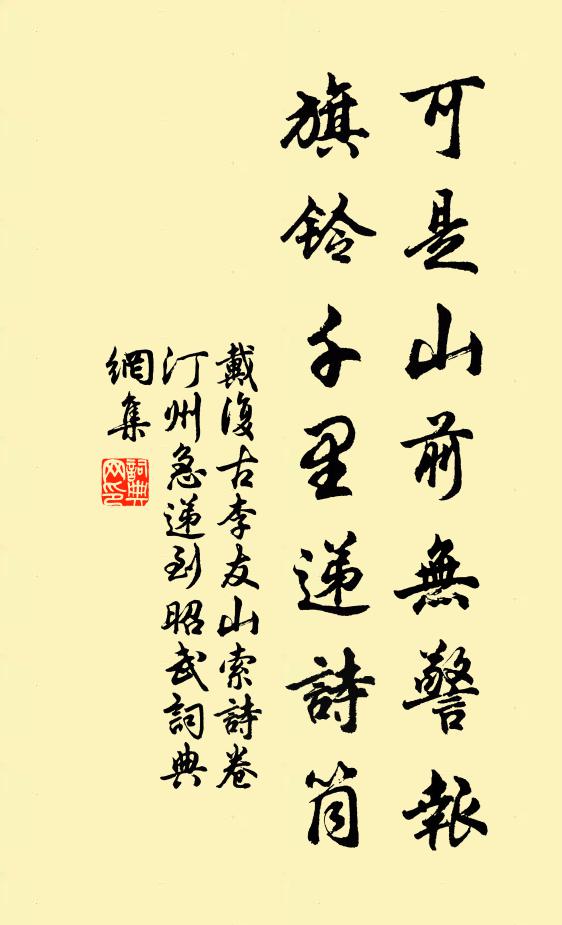 可是山前無警報
旗鈴千里遞詩筒
戴復古李友山索詩卷
汀州急遞到昭武詞典
網集
詞典網印